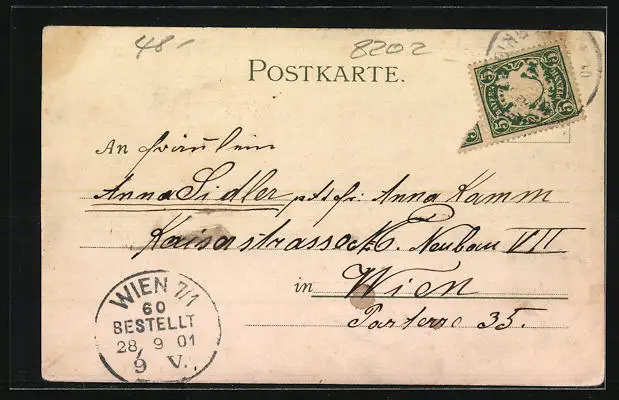 48-
8202
POSTKARTE.
5 5
An Fräulein
Anna Sidler Anna Kamm
Kaiserstrasse Neubau VII
in Wien
Parterre 35.
WIEN 7/1
60
BESTELLT
28 9 01
9 V.